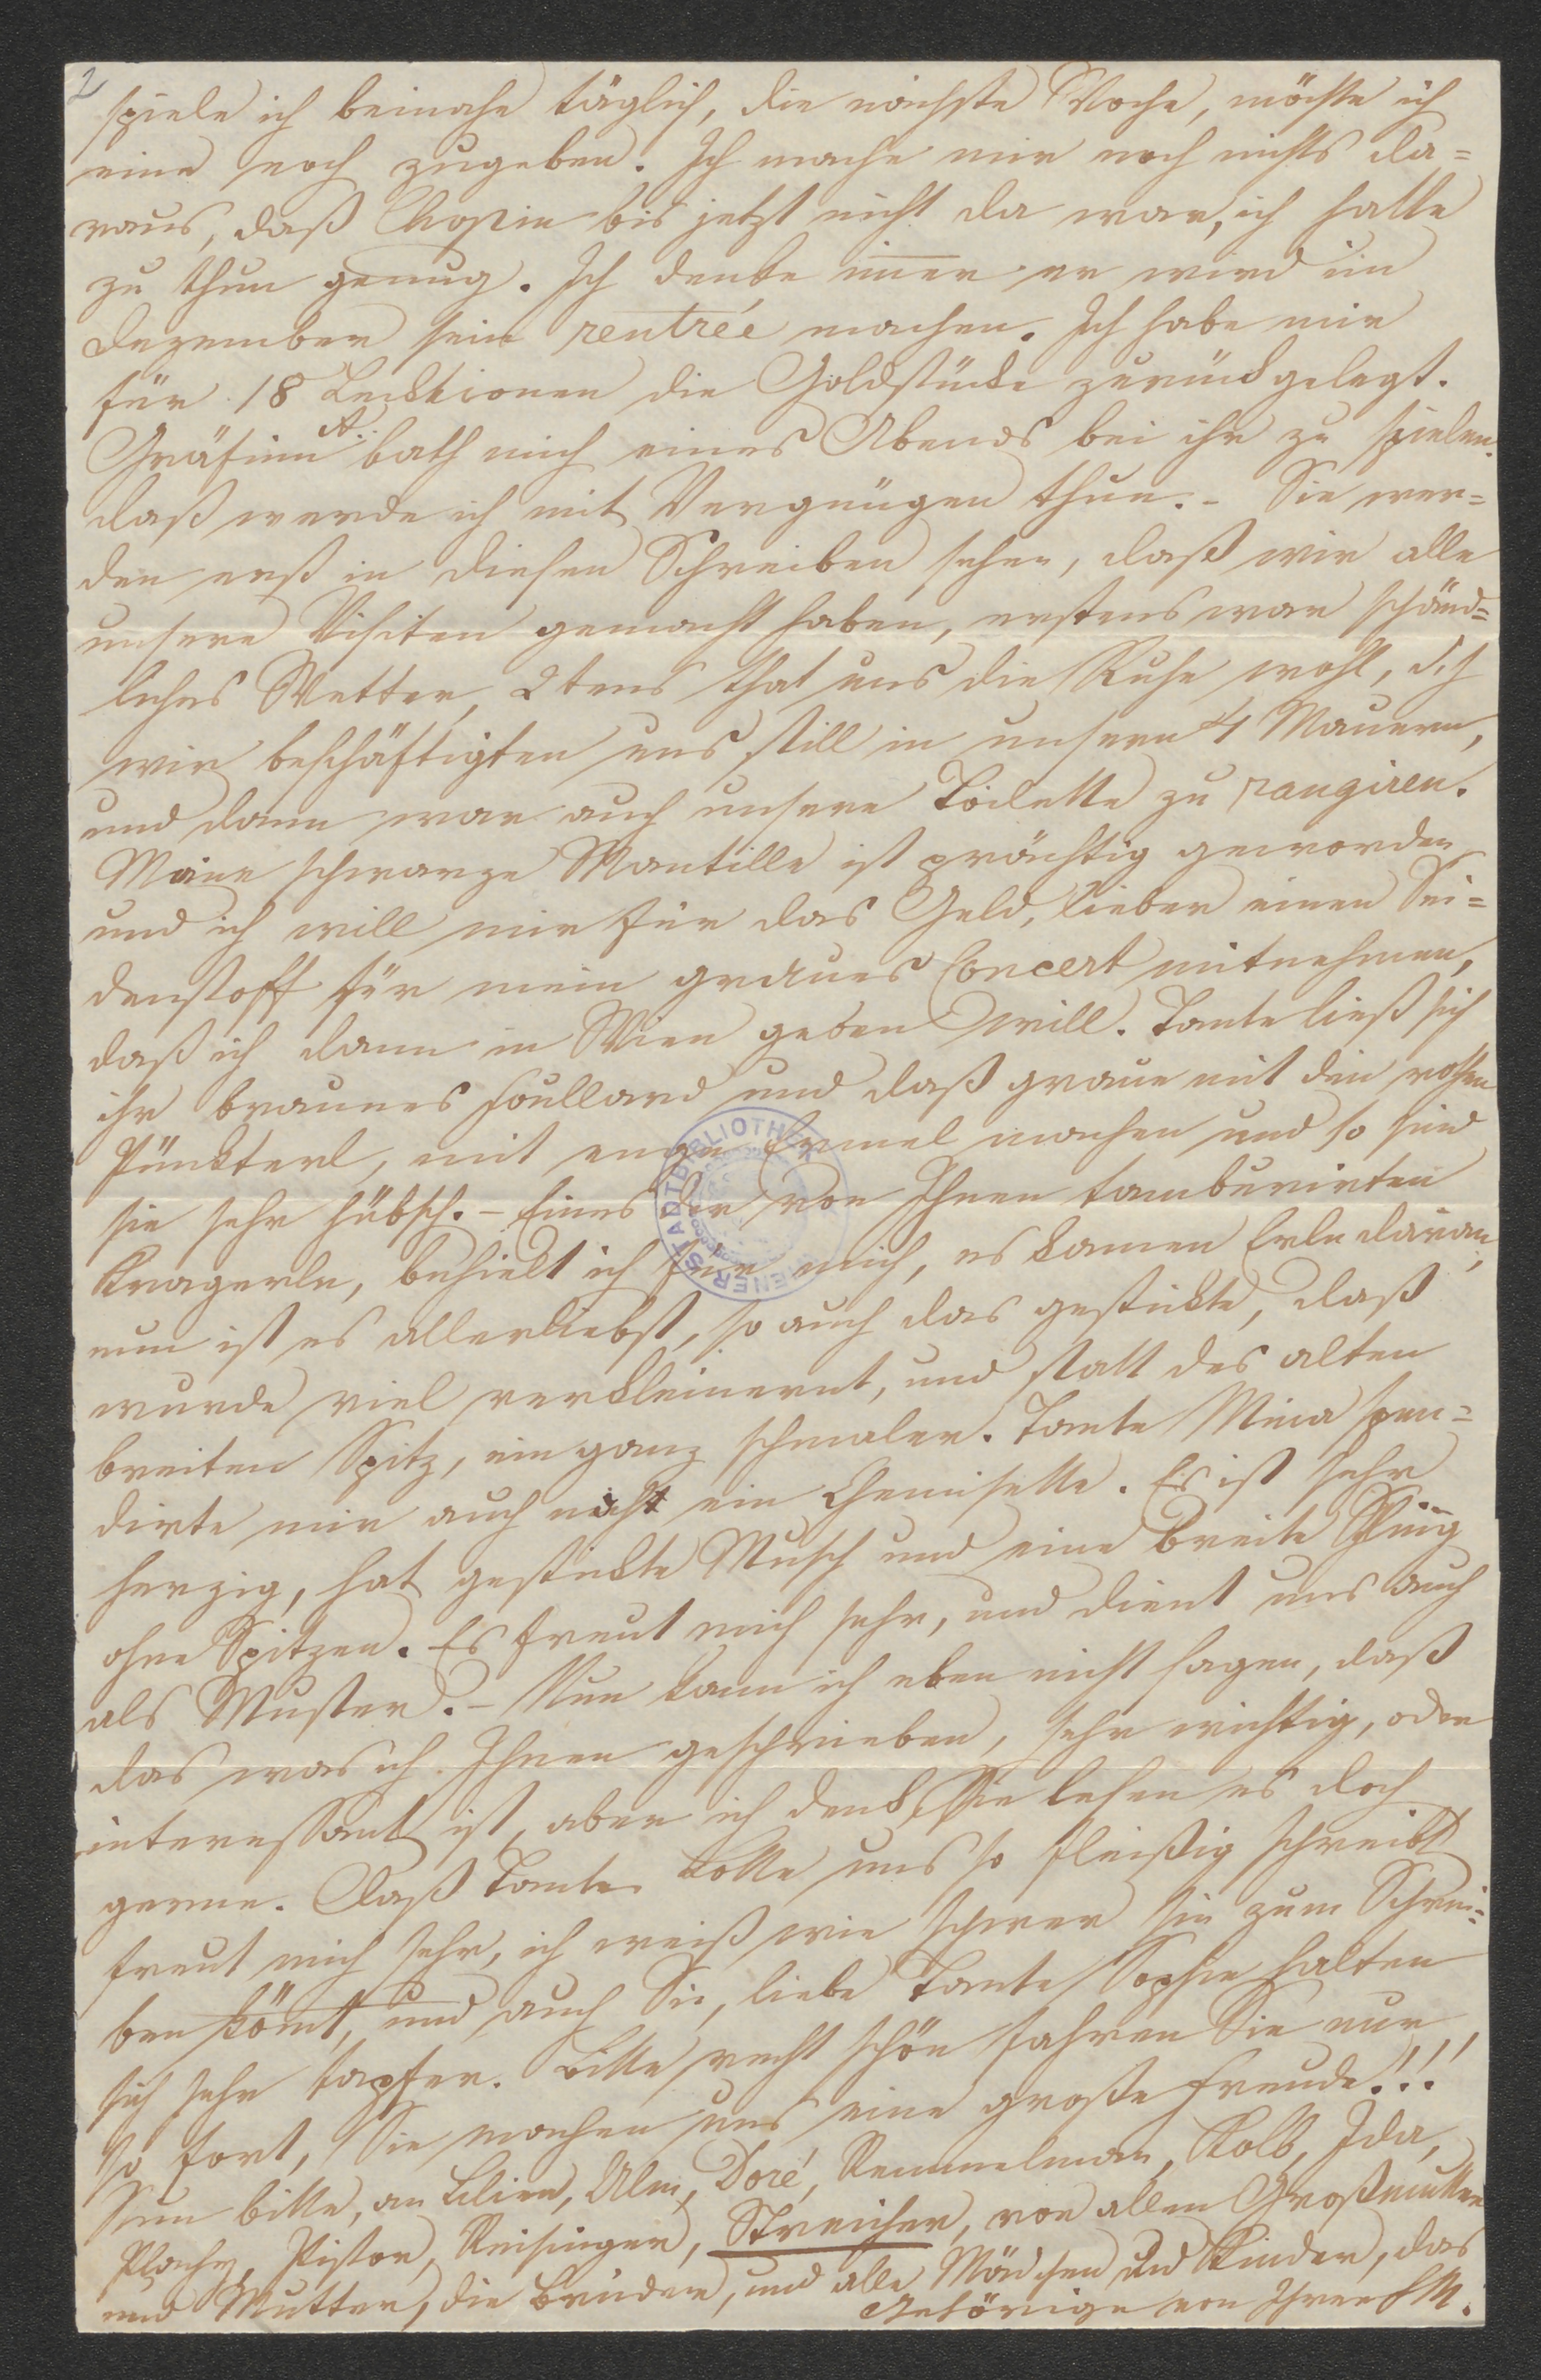 2
spiele ich beinahe täglich, die nächste Woche, möchte ich
eine noch zugeben. Ich mache mir noch nichts da=
raus, daß Chopin bis jetzt nicht da war, ich hatte
zu thun genug. Ich denke im̅er er wird im
Dezember sein rentrée machen. Ich habe mir
für 18 Lecktionen die Goldstücke zurückgelegt.
Gräfinn A. bath mich eines Abends bei ihr zu spielen.
daß werde ich mit Vergnügen thun. – Sie wer=
den erst in diesen Schreiben sehen, daß wir alle
unsere Visiten gemacht haben, erstens war schänd=
liches Wetter, 2tens that uns die Ruhe wohl, d. h
wir beschäftigten uns still in unsern 4 Mauern,
und dann war auch unsere Toilette zu rangiren.
Meine schwarze Mantille ist prächtig geworden
und ich will mir für das Geld, lieber einen Sei=
denstoff für mein graues Concert mitnehmen,
daß ich dann in Wien geben will. Tante ließ sich
ihr braunes Foullard und daß graue mit den rothen
Pünkterl, mit enge Ermel machen und so sind
sie sehr hübsch. – Eines der von Ihnen tamburirten
Kragerln, behielt ich für mich, es kamen Erln daran,
nun ist es allerliebst, so auch das gestickte, daß
wurde viel verkleinernt, und statt des alten
breiten Spitz, ein ganz schmaler. Tante Mina spen=
dirte mir auch nicht ein Chemisette. Es ist sehr
herzig, hat gestickte Musch und eine breite
ohne Spitzen. Es freut mich sehr, und dient uns auch
als Muster. – Nun kann ich eben nicht sagen, daß
das was ich Ihnen geschrieben, sehr wichtig, oder
interessant ist, aber ich denk, Sie lesen es doch
gerne. Daß Tante Lotte uns so fleißig schreibt
freut mich sehr, ich weiß wie schwer sie zum Schrei=
ben köm̅t, und auch Sie, liebe Tante Sophie halten
sich sehr tapfer. Bitte recht schön fahren Sie nur
so fort, Sie machen uns eine große Freude!!!
Nun bitte, an Lilien, Ulm, Doré, Remmelman, Kolb, Ida,
Plachy, Pistor, Reisinger, Streicher, von allen Großmutter
und Mutter, die Brüder, und alle Mädchen und Kinder, das
Gehörige von Ihrer FM.
WIENER STADTBIBLIOTHEK